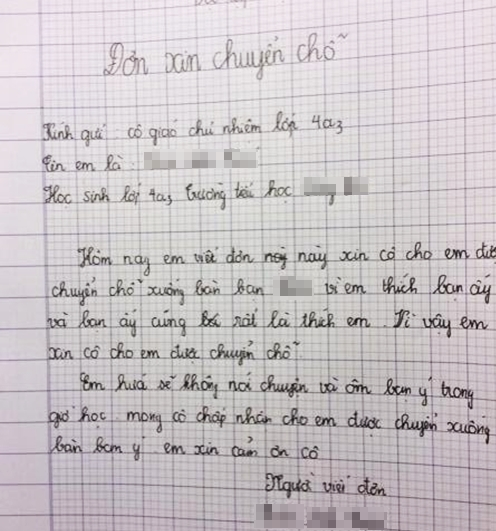 Đơn xin chuyển chỗ
Kính gửi cô giáo chủ nhiệm lớp 4a3
Tên em là:
Học sinh lớp 4a3 trường tiểu học
Hôm nay em viết đơn này này xin cô cho em được
chuyển chỗ xuống bàn bạn vì em thích bạn ấy
và bạn ấy cũng rất là thích em. Vì vậy em
xin cô cho em được chuyển chỗ.
Em hứa sẽ không nói chuyện và ôm bạn ý trong
giờ học. mong cô chấp nhận cho em được chuyển xuống
bàn bạn ý em xin cảm ơn cô
Người viết đơn